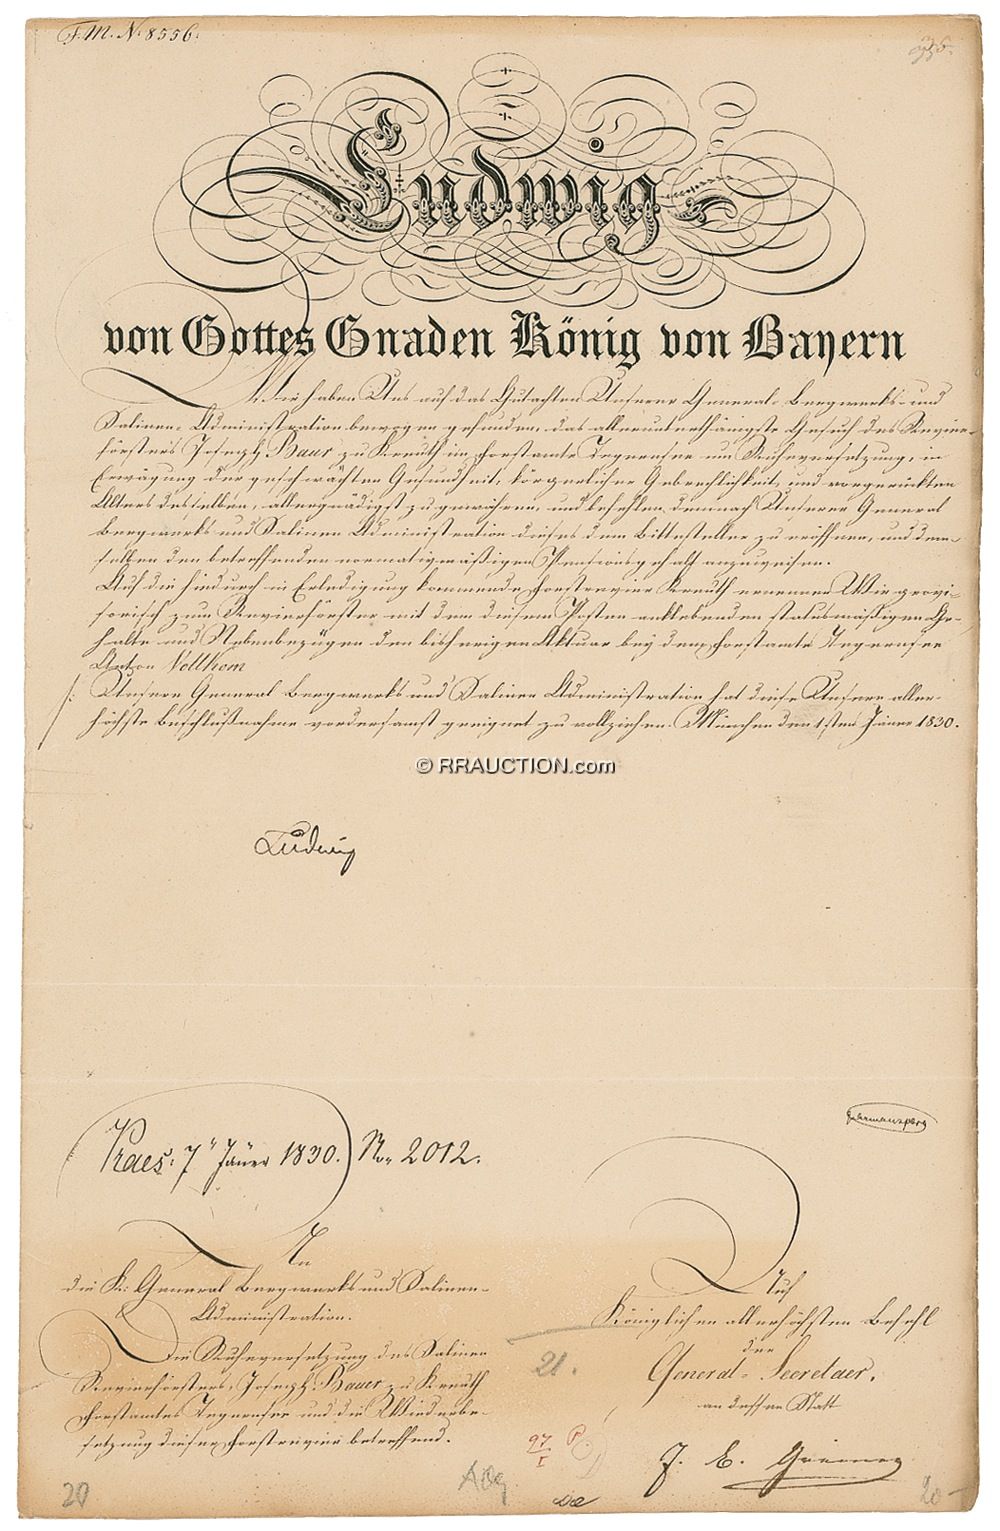 F. M. N. 8556.
Ludwig
von Gottes Gnaden König von Bayern
Wir haben Uns auf das Gutachten Unserer General-Bergwerks- und
Salinen-Administration bewogen gefunden, das allerunterthänigste Gesuch des Revier-
försters Joseph Baur zu Kreuth im Forstamte Tegernsee um Ruheversetzung, in
Erwägung der geschwächten Gesundheit, körperlicher Gebrechlichkeit, und vorgerückten
Alters desselben, allergnädigst zu gewähren, und befehlen demnach Unserer General
Bergwerks und Salinen Administration dieses dem Bittsteller zu eröffnen, und dem-
selben den betreffenden normativmäßigen Pensionsgehalt anzuweisen.
Auf die hiedurch in Erledigung kommende Forstrevier Kreuth ernennen Wir provi-
sorisch zum Revierförster mit dem diesem Posten anklebenden statusmäßigen Ge-
halte und Nebenbezügen den bisherigen Aktuar bey dem Forstamte Tegernsee
Anton Vollhorn
Unsere General Bergwerks und Salinen Administration hat diese Unsere aller-
höchste Beschlußnahme vordersamst geeignet zu vollziehen. München den 1sten Jäner 1830.
© RRAUCTION.com
Ludwig
Praes: 7" Jäner 1830. No. 2012.
An
die K: General Bergwerks und Salinen-
Administration.
Die Ruheversetzung des Salinen
Revierförsters, Joseph Bauer zu Kreuth
Forstamtes Tegernsee und die Wiederbe-
setzung dieser Forstrevier betreffend.
Auf
Königlichen allerhöchsten Befehl
der
General-Secretaer,
an dessen Statt
21.
97
I
20
20